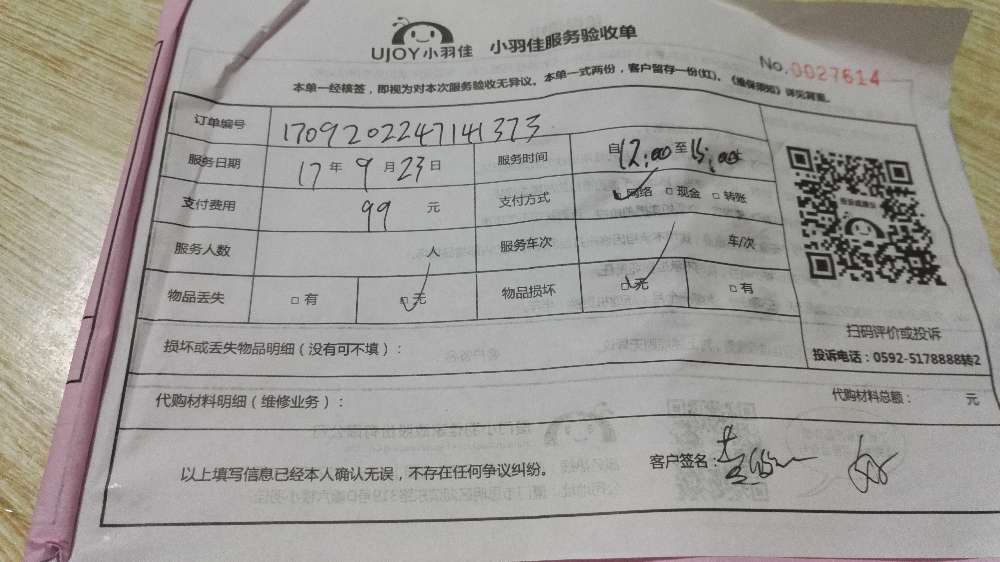 UJOY小羽佳 小羽佳服务验收单
No.0027614
本单一经核签，即视为对本次服务验收无异议。本单一式两份，客户留存一份(红)。《维保须知》详见背面。
订单编号 1709202247141373
服务日期 17年9月23日 服务时间 自12:00至15:00
支付费用 99元 支付方式 网络 □现金 □转账
服务人数 人 服务车次 车/次
物品丢失 □有 □无 物品损坏 □无 □有
扫码评价或投诉
损坏或丢失物品明细（没有可不填）：
投诉电话：0592-5178888转2
代购材料明细（维修业务）： 代购材料总额： 元
以上填写信息已经本人确认无误，不存在任何争议纠纷。 客户签名：